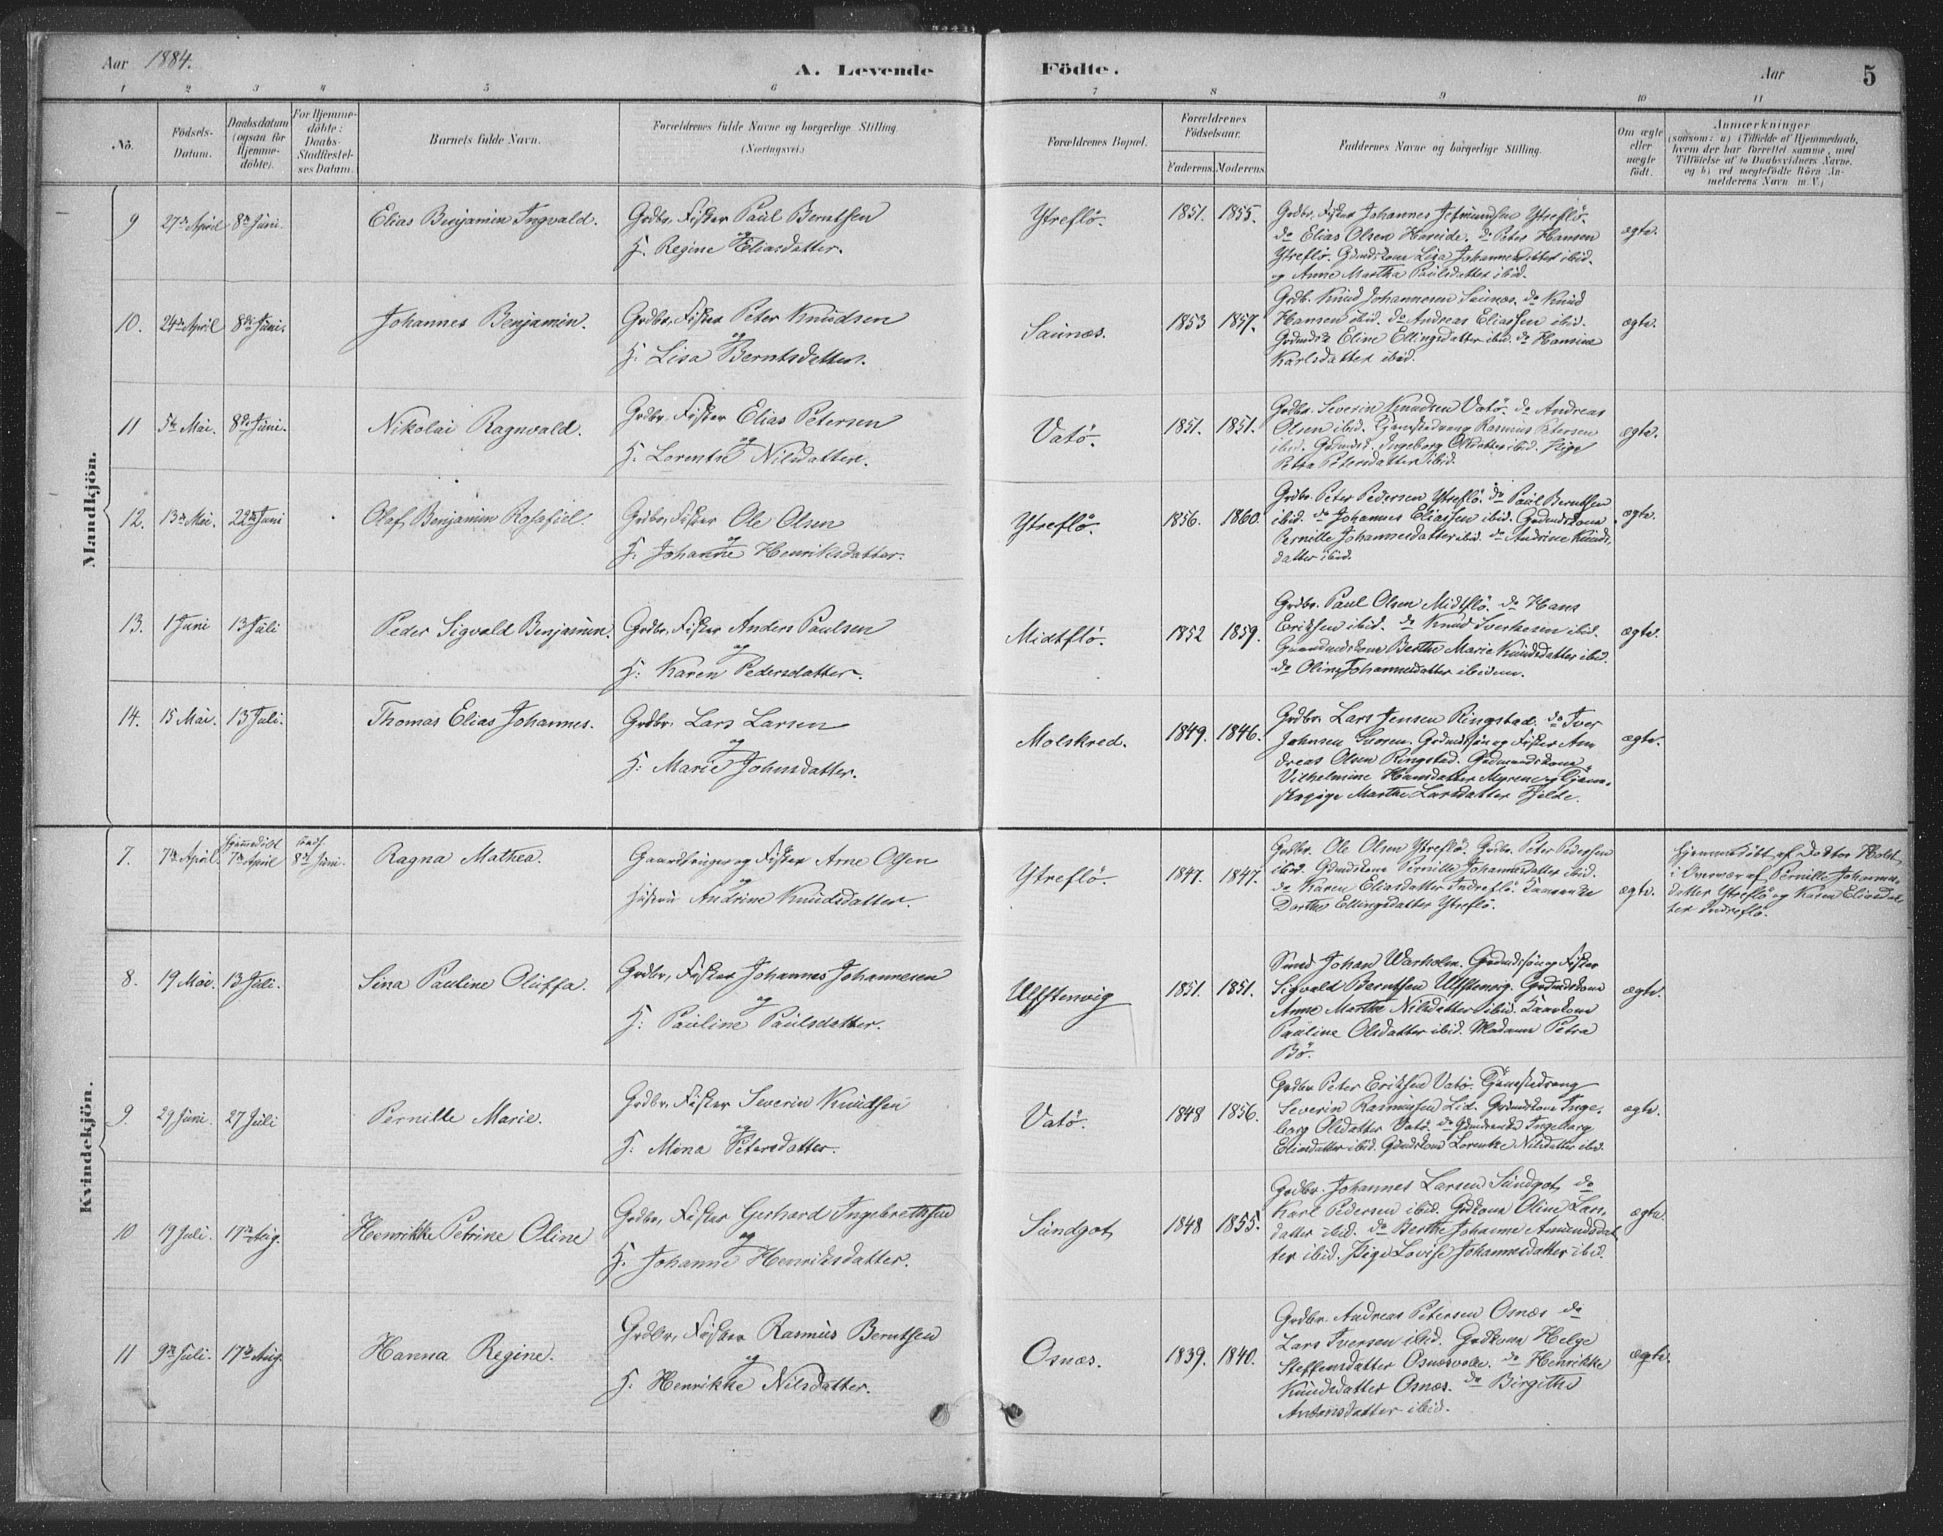 Aar 1884.
A. Levende
Födte.
Aar
5
1 2 3 4 5 6 7 8 9 10 11
No.
Födsels-
Datum.
Daabsdatum
(ogsaa for
Hjemme-
döbte).
For Hjemme-
döbte:
Daabs-
Stadfæstel-
ses Datum.
Barnets fulde Navn.
Forældrenes fulde Navne og borgerlige Stilling
(Næringsvei.)
Forældrenes Bopæl.
Forældrenes
Födselsaar.
Faderens. Moderens.
Faddernes Navne og borgerlige Stilling.
Om ægte
eller
uægte
födt.
Anmærkninger
(saasom: a) i Tilfælde af Hjemmedaab,
hvem der har forrettet samme, med
Tilföielse af to Daabsvidners Navne.
og b) ved uægtefödte Börn An-
melderens Navn m. V.)
Mandkjön.
9 27de April 8de Juni. Elias Benjamin Ingvald. Grdbr. Fisker Paul Berntsen
og
H. Regine Eliasdatter.
Ytreflö. 1851. 1855.
Grdbr. Fisker Johannes Jetmundsen Ytreflö.
do Elias Olsen Hareide. do Peter Hansen
Ytreflö. Gdmdskone Lisa Johannesdatter ibid.
og Anne Martha Paulsdatter ibid.
ægte.
10. 24de April 8de Juni. Johannes Benjamin. Grdbr. Fisker Peter Knudsen
og
H: Lisa Berntsdatter.
Saunæs. 1853 1857.
Grdb. Knud Johannesen Saunæs. do Knud
Hansen ibid. do Andreas Eliassen ibid.
Eline Ellingsdatter ibid. do Hansine
Karlsdatter ibid.
ægte.
11 5te Mai. 8de Juni. Nikolai Ragnvald. Grdbr. Fisker Elias Petersen
og
H. Lorentse Nilsdatter.
Vatö. 1851. 1851.
Grdbr. Severin Knudsen Vatö. do Andreas
Olsen ibid. Tjenestedreng Rasmus Petersen
ibid. Gdmdsk. Ingeborg Olsdatter ibid. Pige
Petra Petersdatter ibid.
ægte.
12. 13de Mai. 22de Juni Olaf Benjamin Rofafiel. Grdbr. Fisker Ole Olsen
og
H. Johanne Henriksdatter.
Ytreflö. 1856. 1860.
Grdbr. Peter Pedersen Ytreflö. do Paul Berntsen
ibid. do Johannes Eliassen ibid. Grdmdskone
Pernille Johannesdatter ibid. do Andrine Knuds-
datter ibid.
ægte.
13. 1 Juni 13 Juli Peder Sigvald Benjamin. Grdbr. Fisker Anders Paulsen
og
H: Karen Pedersdatter.
Midtflö. 1852 1859.
Grdbr. Paul Olsen Midtflö. do Hans
Eriksen ibid. do Knud Iversen ibid.
Gaardmdskone Berthe Marie Knudsdatter ibid.
do Oline Johannesdatter ibidem.
ægte.
14. 15 Mai. 13 Juli. Thomas Elias Johannes. Grdbr. Lars Larsen
og
H: Marie Johnsdatter.
Molskred. 1849. 1846.
Grdbr. Lars Jensen Ringstad. do Iver
Johnsen. Grdmdssön og Fisker An-
dreas Olsen Ringstad. Grdmandskone
Vilhelmine Hansdatter Myren og Tjene-
stepige Marthe Larsdatter Fjelde.
ægte.
Kvindekjön.
7. 7de April. hjemmedöbt
7de April
8de Juni. Ragna Mathea. Gaardbruger og Fisker Arne Olsen
og
Hustru Andrine Knudsdatter.
Ytreflö. 1847. 1847.
Grdbr. Ole Olsen Ytreflö. Grdbr. Peter Pedersen
ibid. Gdmdskone Pernille Johannesdatter ibid.
do Karen Eliasdatter Indreflö.
Dorthe Ellingsdatter Ytreflö.
ægte.
Hjemmedöbt af Doktor Holst,
i Overvær af Pernille Johannes-
datter Ytreflö og Karen Eliasdat-
ter Indreflö.
8. 19 Mai. 13 Juli. Sina Pauline Oluffa. Grdbr. Fisker Johannes Johannesen
og
H: Pauline Paulsdatter.
Ulfstenvig 1851. 1851.
Smed Johan Warholm. Grdmdssön og Fisker
Sigvald Berntsen Ulfstenvig. Grdmdskone
Anne Marthe Nilsdatter ibid. Kaarkone
Pauline Olsdatter ibid. Madame Petra
Bö.
ægte.
9. 29 Juni. 27 Juli Pernille Marie. Grdbr. Fisker Severin Knudsen
og
H: Mona Petersdatter.
Vatö. 1848 1856.
Grdbr. Peter Eriksen Vatö. Tjenestedreng
Severin Rasmussen Lid. Grdmdskone Inge-
borg Olsdatter Vatö. do Ingeborg
Eliasdatter ibid. Gdmdskone Lorentze Nilsdatter ibid.
ægte.
10 19 Juli. 17de Aug. Henrikke Petrine Oline Grdbr. Fisker Gerhard Ingebrethsen
og
H: Johanne Henriksdatter.
Sundgot 1848 1855.
Grdbr. Johannes Larsen Sundgot, do
Karl Pedersen ibid. Grdkone Oline Lars-
datter ibid. do Berthe Johanne Amundsdat-
ter ibid. Pige Lovise Johannesdatter ibid.
ægte.
11 9de Juli. 17de Aug. Hanna Regine. Grdbr. Fisker Rasmus Berntsen
og
H: Henrikke Nilsdatter.
Osnæs. 1839. 1840.
Grdbr. Andreas Petersen Osnæs do
Lars Iversen ibid. Grdkone Helge
Steffensdatter Osnæsvolle. do Henrikke
Knudsdatter Osnæs. do Birgithe
Antonsdatter ibid.
ægte.